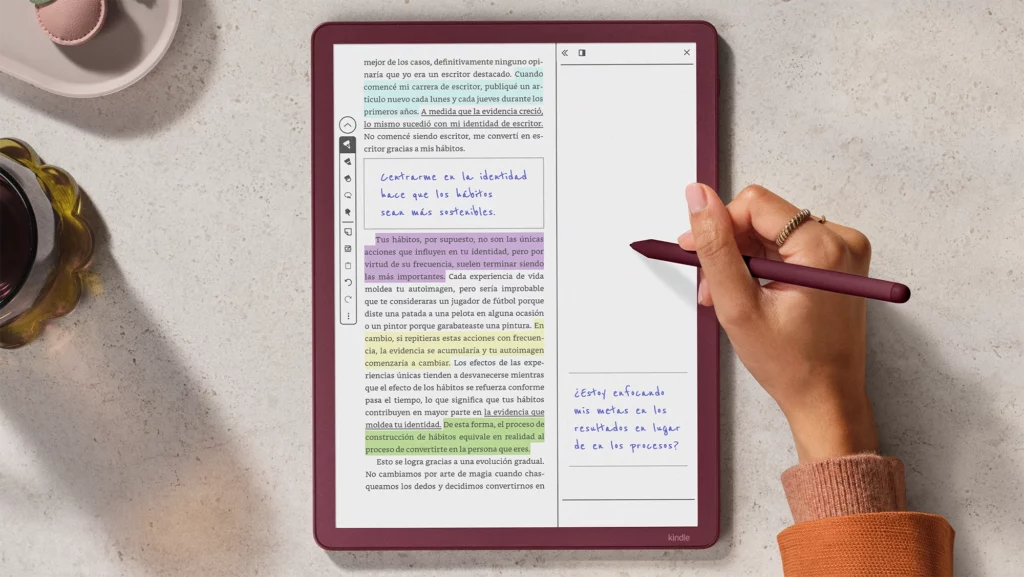 mejor de los casos, definitivamente ninguno opi-
naría que yo era un escritor destacado. Cuando
comencé mi carrera de escritor, publiqué un ar-
tículo nuevo cada lunes y cada jueves durante los
primeros años. A medida que la evidencia creció,
lo mismo sucedió con mi identidad de escritor.
No comencé siendo escritor, me convertí en es-
critor gracias a mis hábitos.
Centrarme en la identidad
hace que los hábitos
sean más sostenibles.
Tus hábitos, por supuesto, no son las únicas
acciones que influyen en tu identidad, pero por
virtud de su frecuencia, suelen terminar siendo
las más importantes. Cada experiencia de vida
moldea tu autoimagen, pero sería improbable
que te consideraras un jugador de fútbol porque
diste una patada a una pelota en alguna ocasión
o un pintor porque garabateaste una pintura. En
cambio, si repitieras estas acciones con frecuen-
cia, la evidencia se acumularía y tu autoimagen
comenzaría a cambiar. Los efectos de las expe-
riencias únicas tienden a desvanecerse mientras
que el efecto de los hábitos se refuerza conforme
pasa el tiempo, lo que significa que tus hábitos
contribuyen en mayor parte en la evidencia que
moldea tu identidad. De esta forma, el proceso de
construcción de hábitos equivale en realidad al
proceso de convertirte en la persona que eres.
Esto se logra gracias a una evolución gradual.
No cambiamos por arte de magia cuando chas-
queamos los dedos y decidimos convertirnos en
¿Estoy enfocando
mis metas en los
resultados en lugar
de en los procesos?
kindle